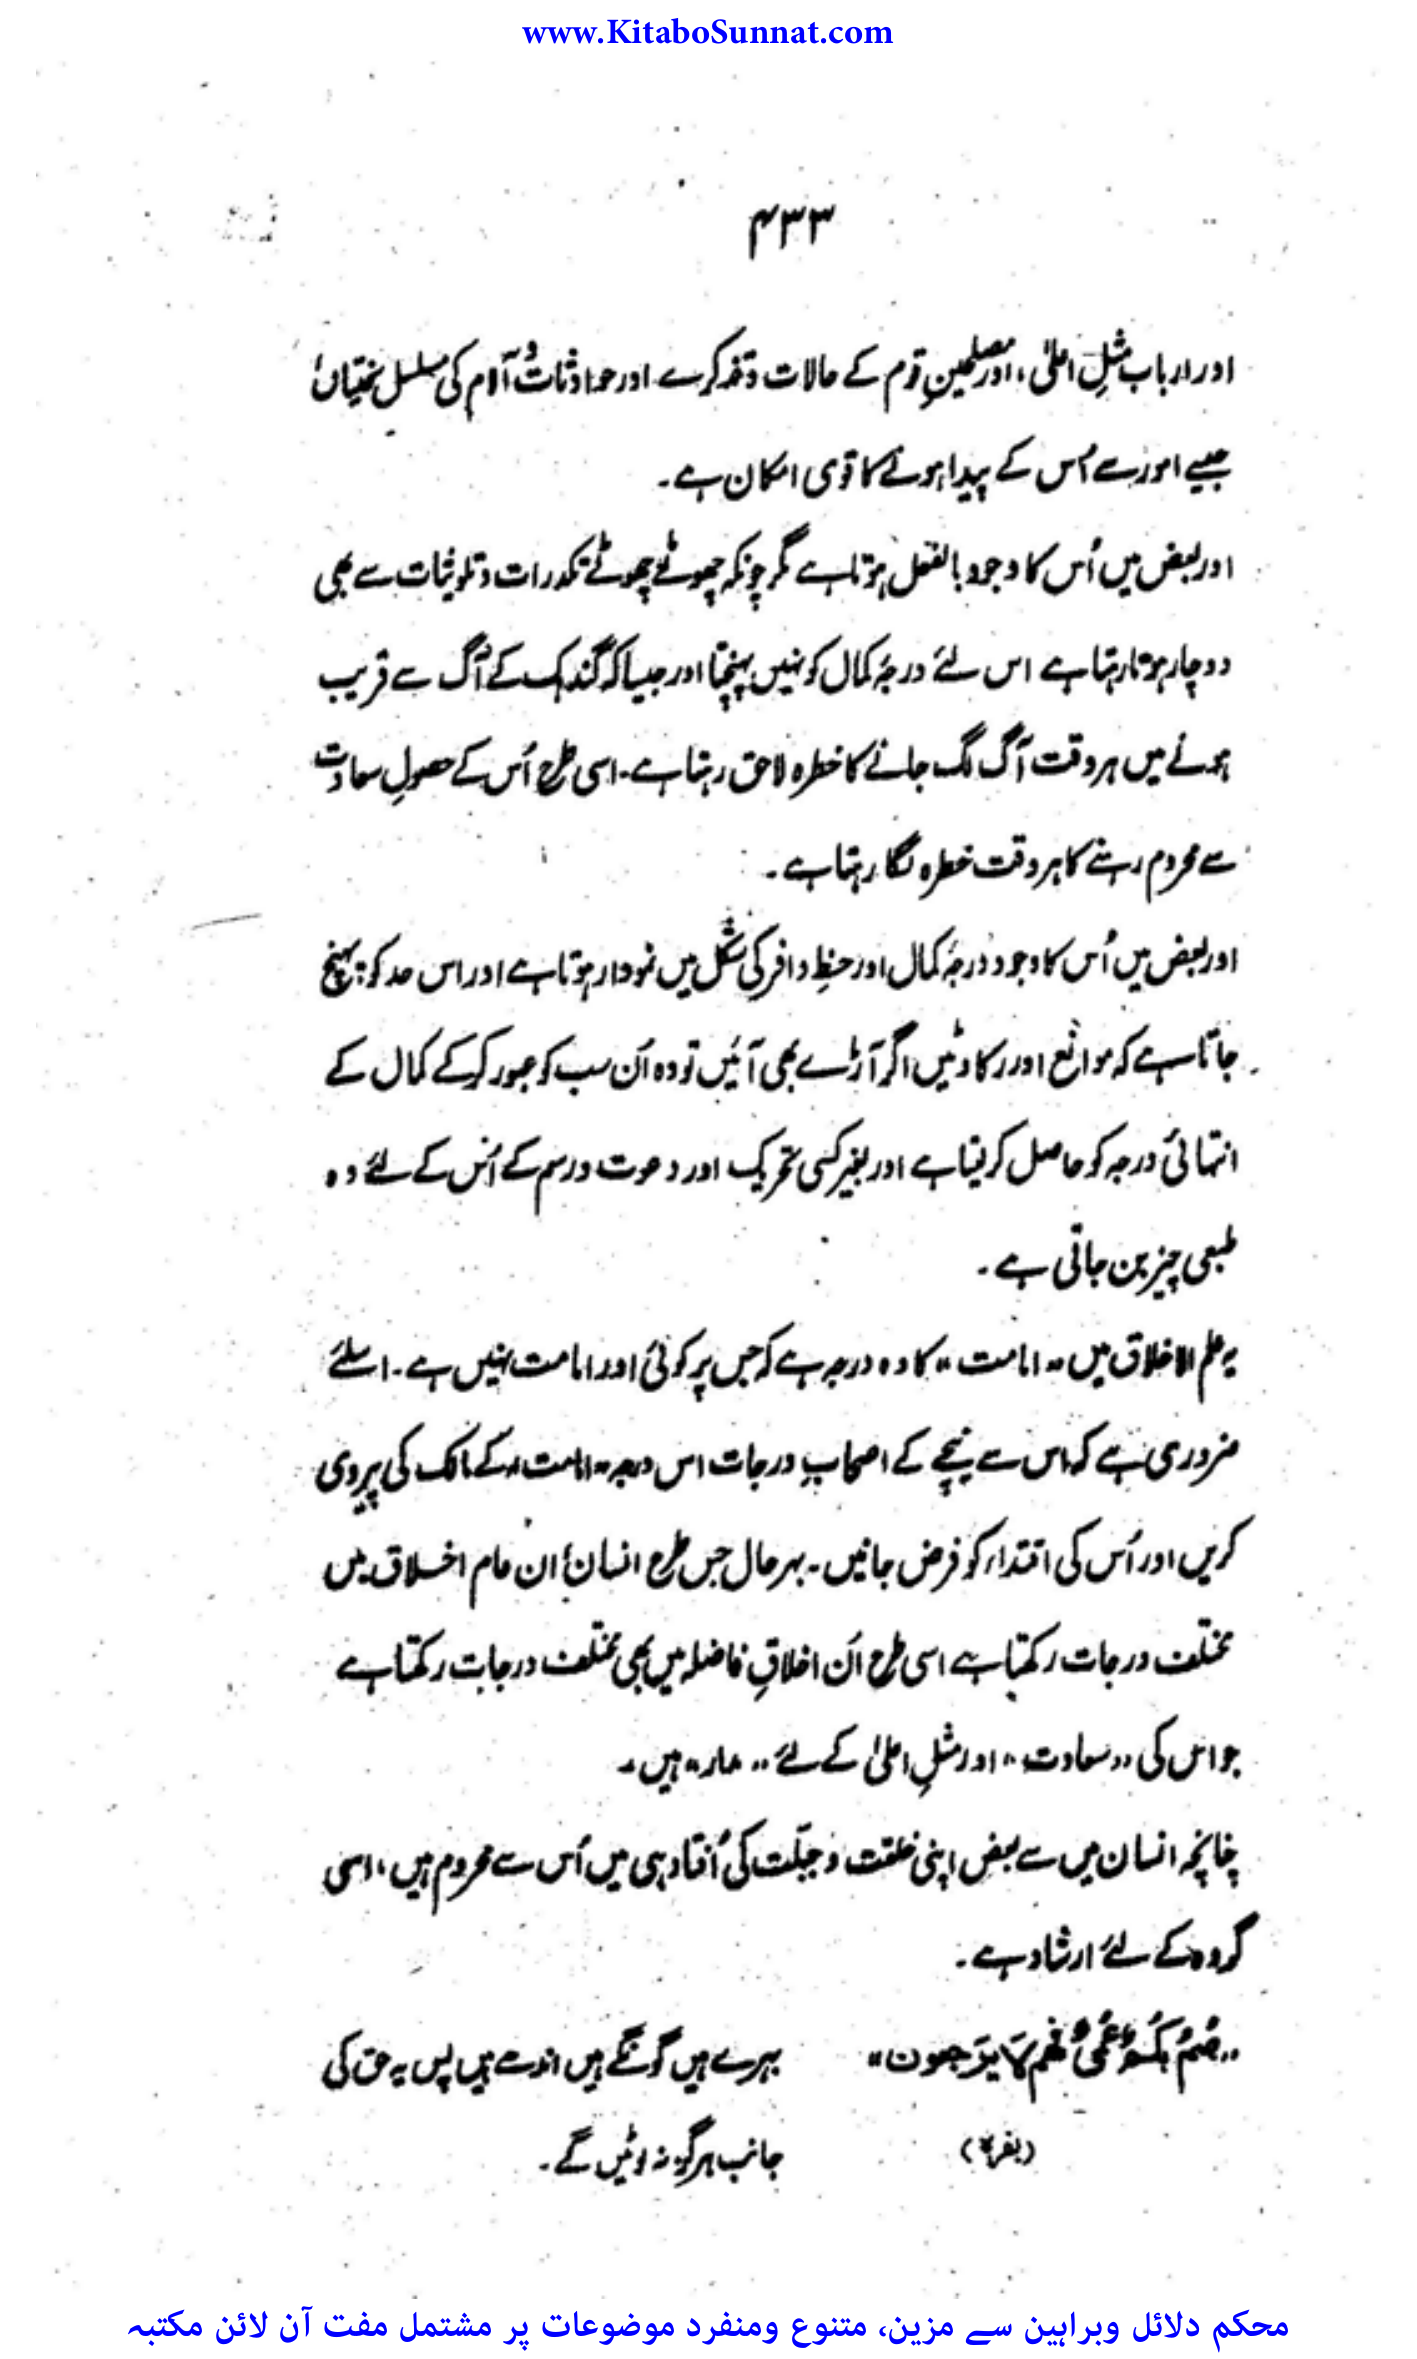 www.KitaboSunnat.com
۴۳۳
اور ارباب مثلِ اعلیٰ، اور مصلحینِ قوم کے حالات و تذکرے اور حوادثات و آلام کی مسلسل سختیاں
جیسے امور سے اُس کے پیدا ہونے کا قوی امکان ہے۔
اور بعض میں اُس کا وجود بالفعل ہوتا ہے مگر چونکہ چھوٹے چھوٹے تکدرات و تلویثات سے بھی
دوچار ہوتا رہتا ہے اس لئے درجۂ کمال کو نہیں پہنچتا اور جیسا کہ گندہک کے آگ سے قریب
ہونے میں ہر وقت آگ لگ جانے کا خطرہ لاحق رہتا ہے۔ اسی طرح اُس کے حصولِ سعادت
سے محروم رہنے کا ہر وقت خطرہ لگا رہتا ہے۔
اور بعض میں اُس کا وجود درجۂ کمال اور حظِ وافر کی شکل میں نمودار ہوتا ہے اور اس حد کو پہنچ
جاتا ہے کہ موانع اور رکاوٹیں اگر آڑے بھی آئیں تو وہ اُن سب کو عبور کر کے کمال کے
انتہائی درجہ کو حاصل کر لیتا ہے اور بغیر کسی تحریک اور دعوت و رسم کے اُس کے لئے وہ
طبعی چیز بن جاتی ہے۔
یہ علم الاخلاق میں "امامت" کا وہ درجہ ہے کہ جس پر کوئی اور امامت نہیں ہے۔ اسلئے
ضروری ہے کہ اس سے نیچے کے اصحابِ درجات اس درجہ "امامت" کے مالک کی پیروی
کریں اور اُس کی اقتداء کو فرض جانیں۔ بہر حال جس طرح انسان ان عام اخلاق میں
مختلف درجات رکھتا ہے اسی طرح اُن اخلاقِ فاضلہ میں بھی مختلف درجات رکھتا ہے
جو اس کی "سعادت" اور مثلِ اعلیٰ کے لئے "مدار" ہیں۔
چنانچہ انسان میں سے بعض اپنی خلقت و جبلّت کی اُفتاد ہی میں اُس سے محروم ہیں، اسی
گروہ کے لئے ارشاد ہے۔
"صُمٌّ بُكْمٌ عُمْيٌ فَهُمْ لَا يَرْجِعُونَ" بہرے ہیں گونگے ہیں اندھے ہیں پس یہ حق کی
(بقرہ) جانب ہرگز نہ لوٹیں گے۔
محکم دلائل وبراہین سے مزین، متنوع ومنفرد موضوعات پر مشتمل مفت آن لائن مکتبہ